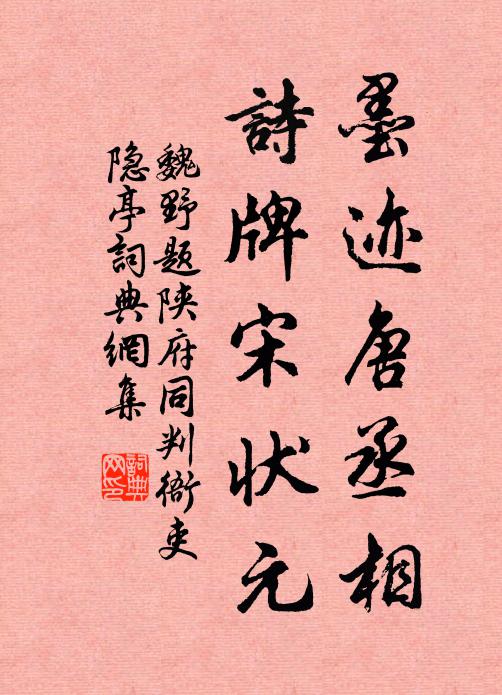 墨迹唐丞相
詩牌宋状元
魏野题陕府同判衙吏
隐亭詞典網集
詞典網印